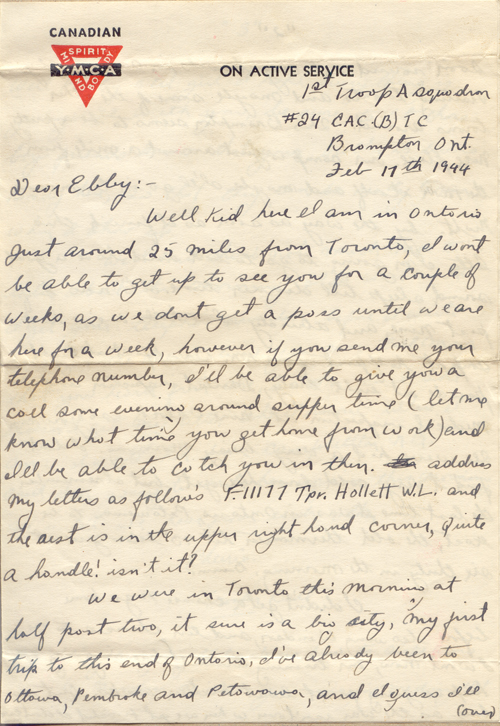 CANADIAN
SPIRIT
MIND
BODY
Y·M·C·A
ON ACTIVE SERVICE
1st Troop A squadron
#24 C.A.C.(B) T C
Brompton Ont.
Feb 17th 1944
Dear Ebby:-
Well Kid here I am in Ontario
just around 25 miles from Toronto, I wont
be able to get up to see you for a couple of
weeks, as we dont get a pass until we are
here for a week, however if you send me your
telephone number, I'll be able to give you a
call some evening around supper time (let me
know what time you get home from work) and
I'll be able to catch you in then. address
my letters as follows F.11177 Tpr. Hollett W.L. and
the rest is in the upper right hand corner, quite
a handle! isn't it?
We were in Toronto this morning at
half past two, it sure is a big city, my first
trip to this end of Ontario, I've already been to
Ottawa, Pembroke and Petawawa, and I guess I'll
(over)